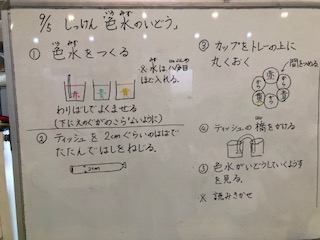 9/5 じっけん「色水のいどう」
いろ みず
① 色水をつくる
いろ みず
赤 青 黄
※水は八分目
ほど入れる。
わりばしでよくまぜる
(下に大のぐがのこらないように)
② ティッシュを2cmぐらいのはばで
たたんではしをねじる。
2cm
③ カップをトレーの上に
丸くおく
間をつめる
④ ティッシュの橋をかける
⑤ 色水がいどうしていくようす
を見る。
※ 読みきかせ